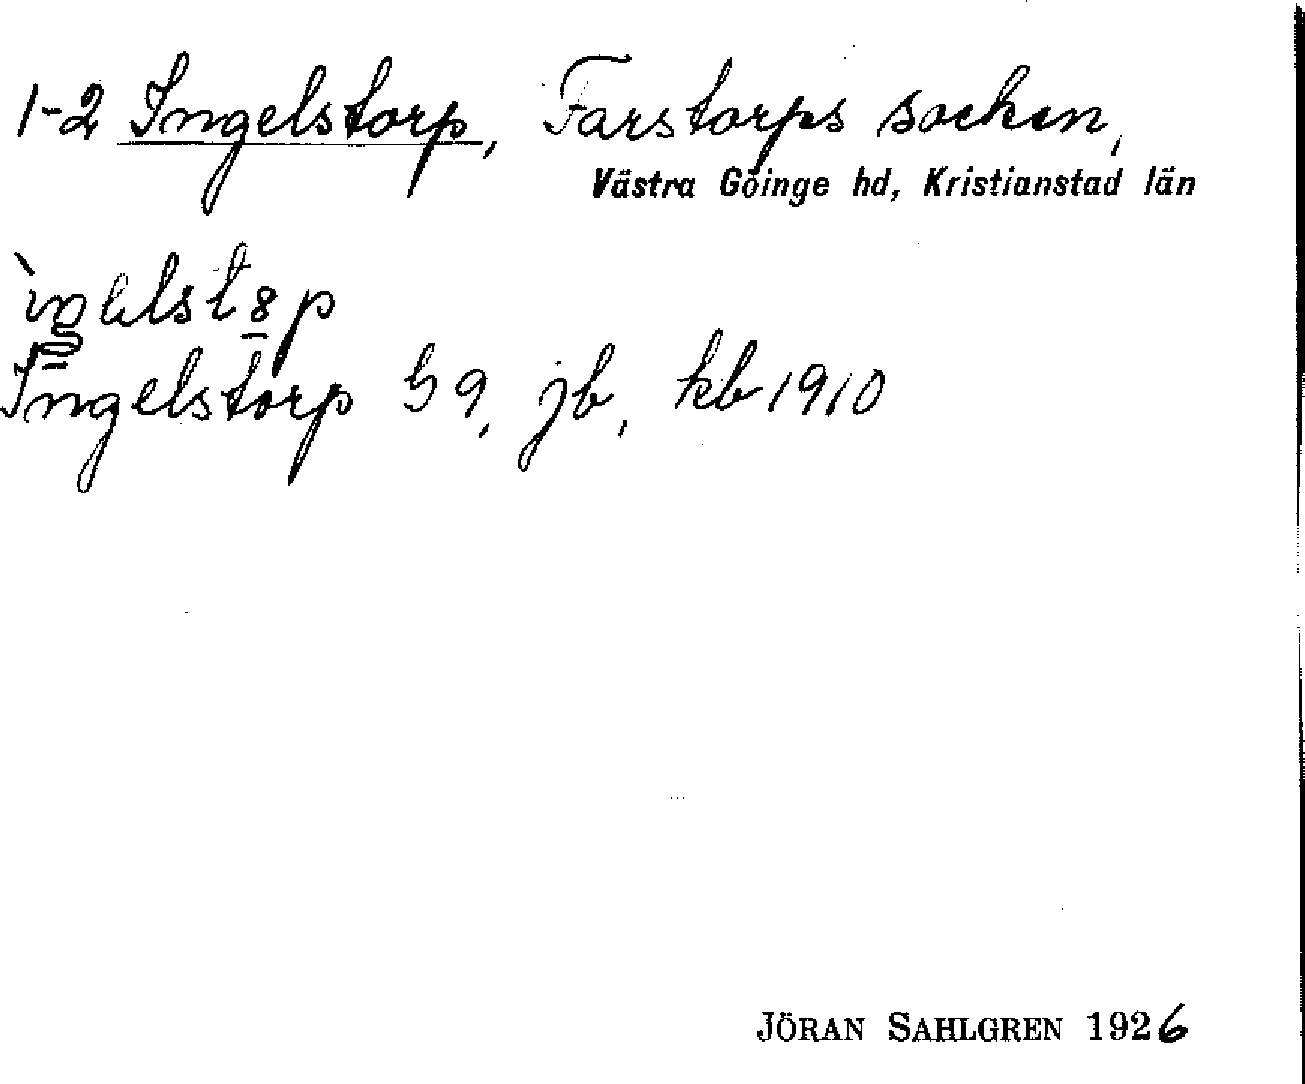 1-2 Ingelstorp, Farstorps socken,
Västra Göinge hd, Kristianstad län
Ingelstorp G 9, jb, kb 1910
JÖRAN SAHLGREN 1926